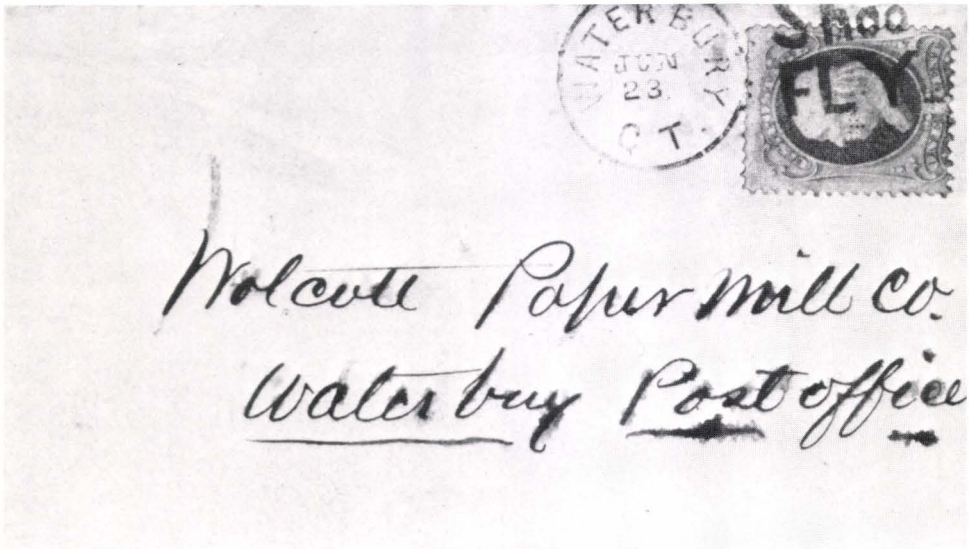 WATERBURY
JUN
23.
CT.
Shoo
FLY
Wolcott Paper Mill Co.
Waterbury Post office